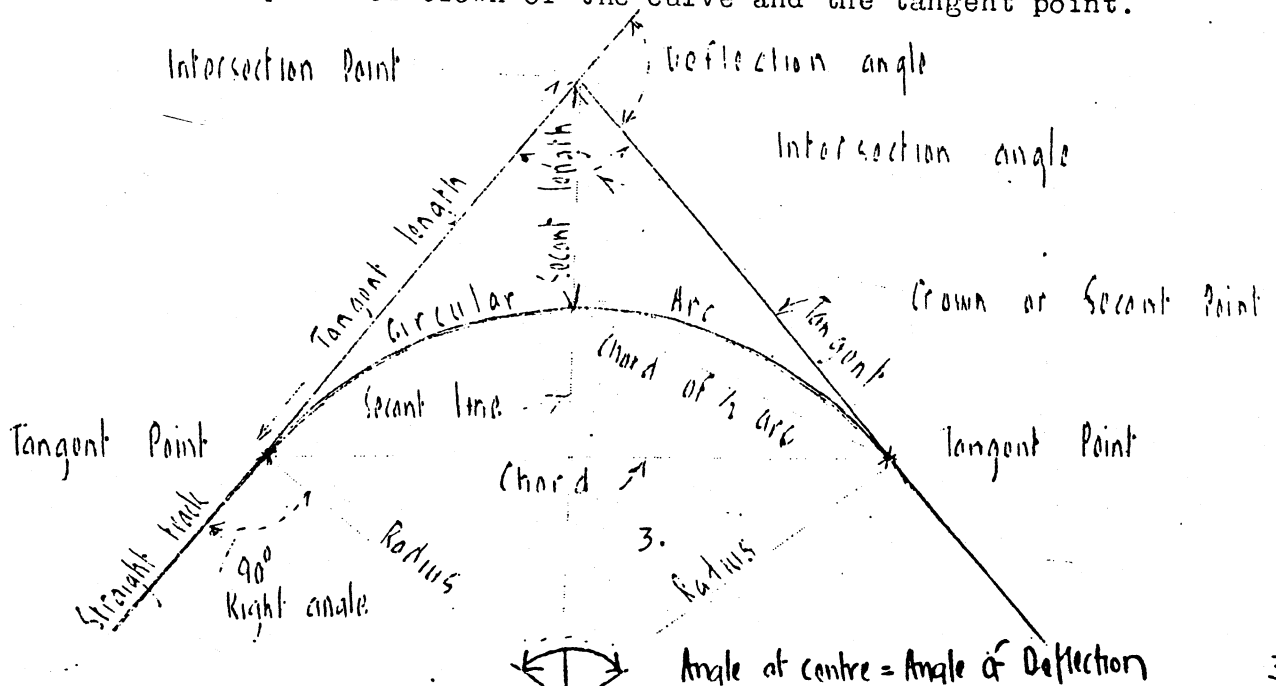 crown of the curve and the tangent point.
Intersection Point
Deflection angle
Intersection angle
Tangent length
Secant length
Crown or Secant Point
Circular Arc
Tangent
Chord of ½ arc
Secant line
Tangent Point
Tangent Point
Chord
Straight track
90°
Right angle
Radius
3.
Radius
Angle at centre = Angle of Deflection
3